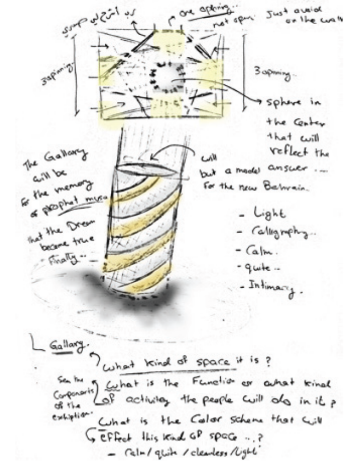 one opening..
not span.
Just avoid
on the wall
3 opening
3 opening.
sphere in
the center
that will
reflect the
answer ....
The Gallary
will be
for the memory
of prophet
that the Dream
become true
Finally...
will
but a model
for the new Bahrain.
- Light
- Calligraphy..
- Calm..
- quite..
- Intimacy.
Gallary.
What kind of space it is?
See the
Components
of the
exhibition
What is the Function or what kind
of activity the people will do in it?
What is the Color scheme that will
effect this kind of space ...?
- calm/quite/clearless/light